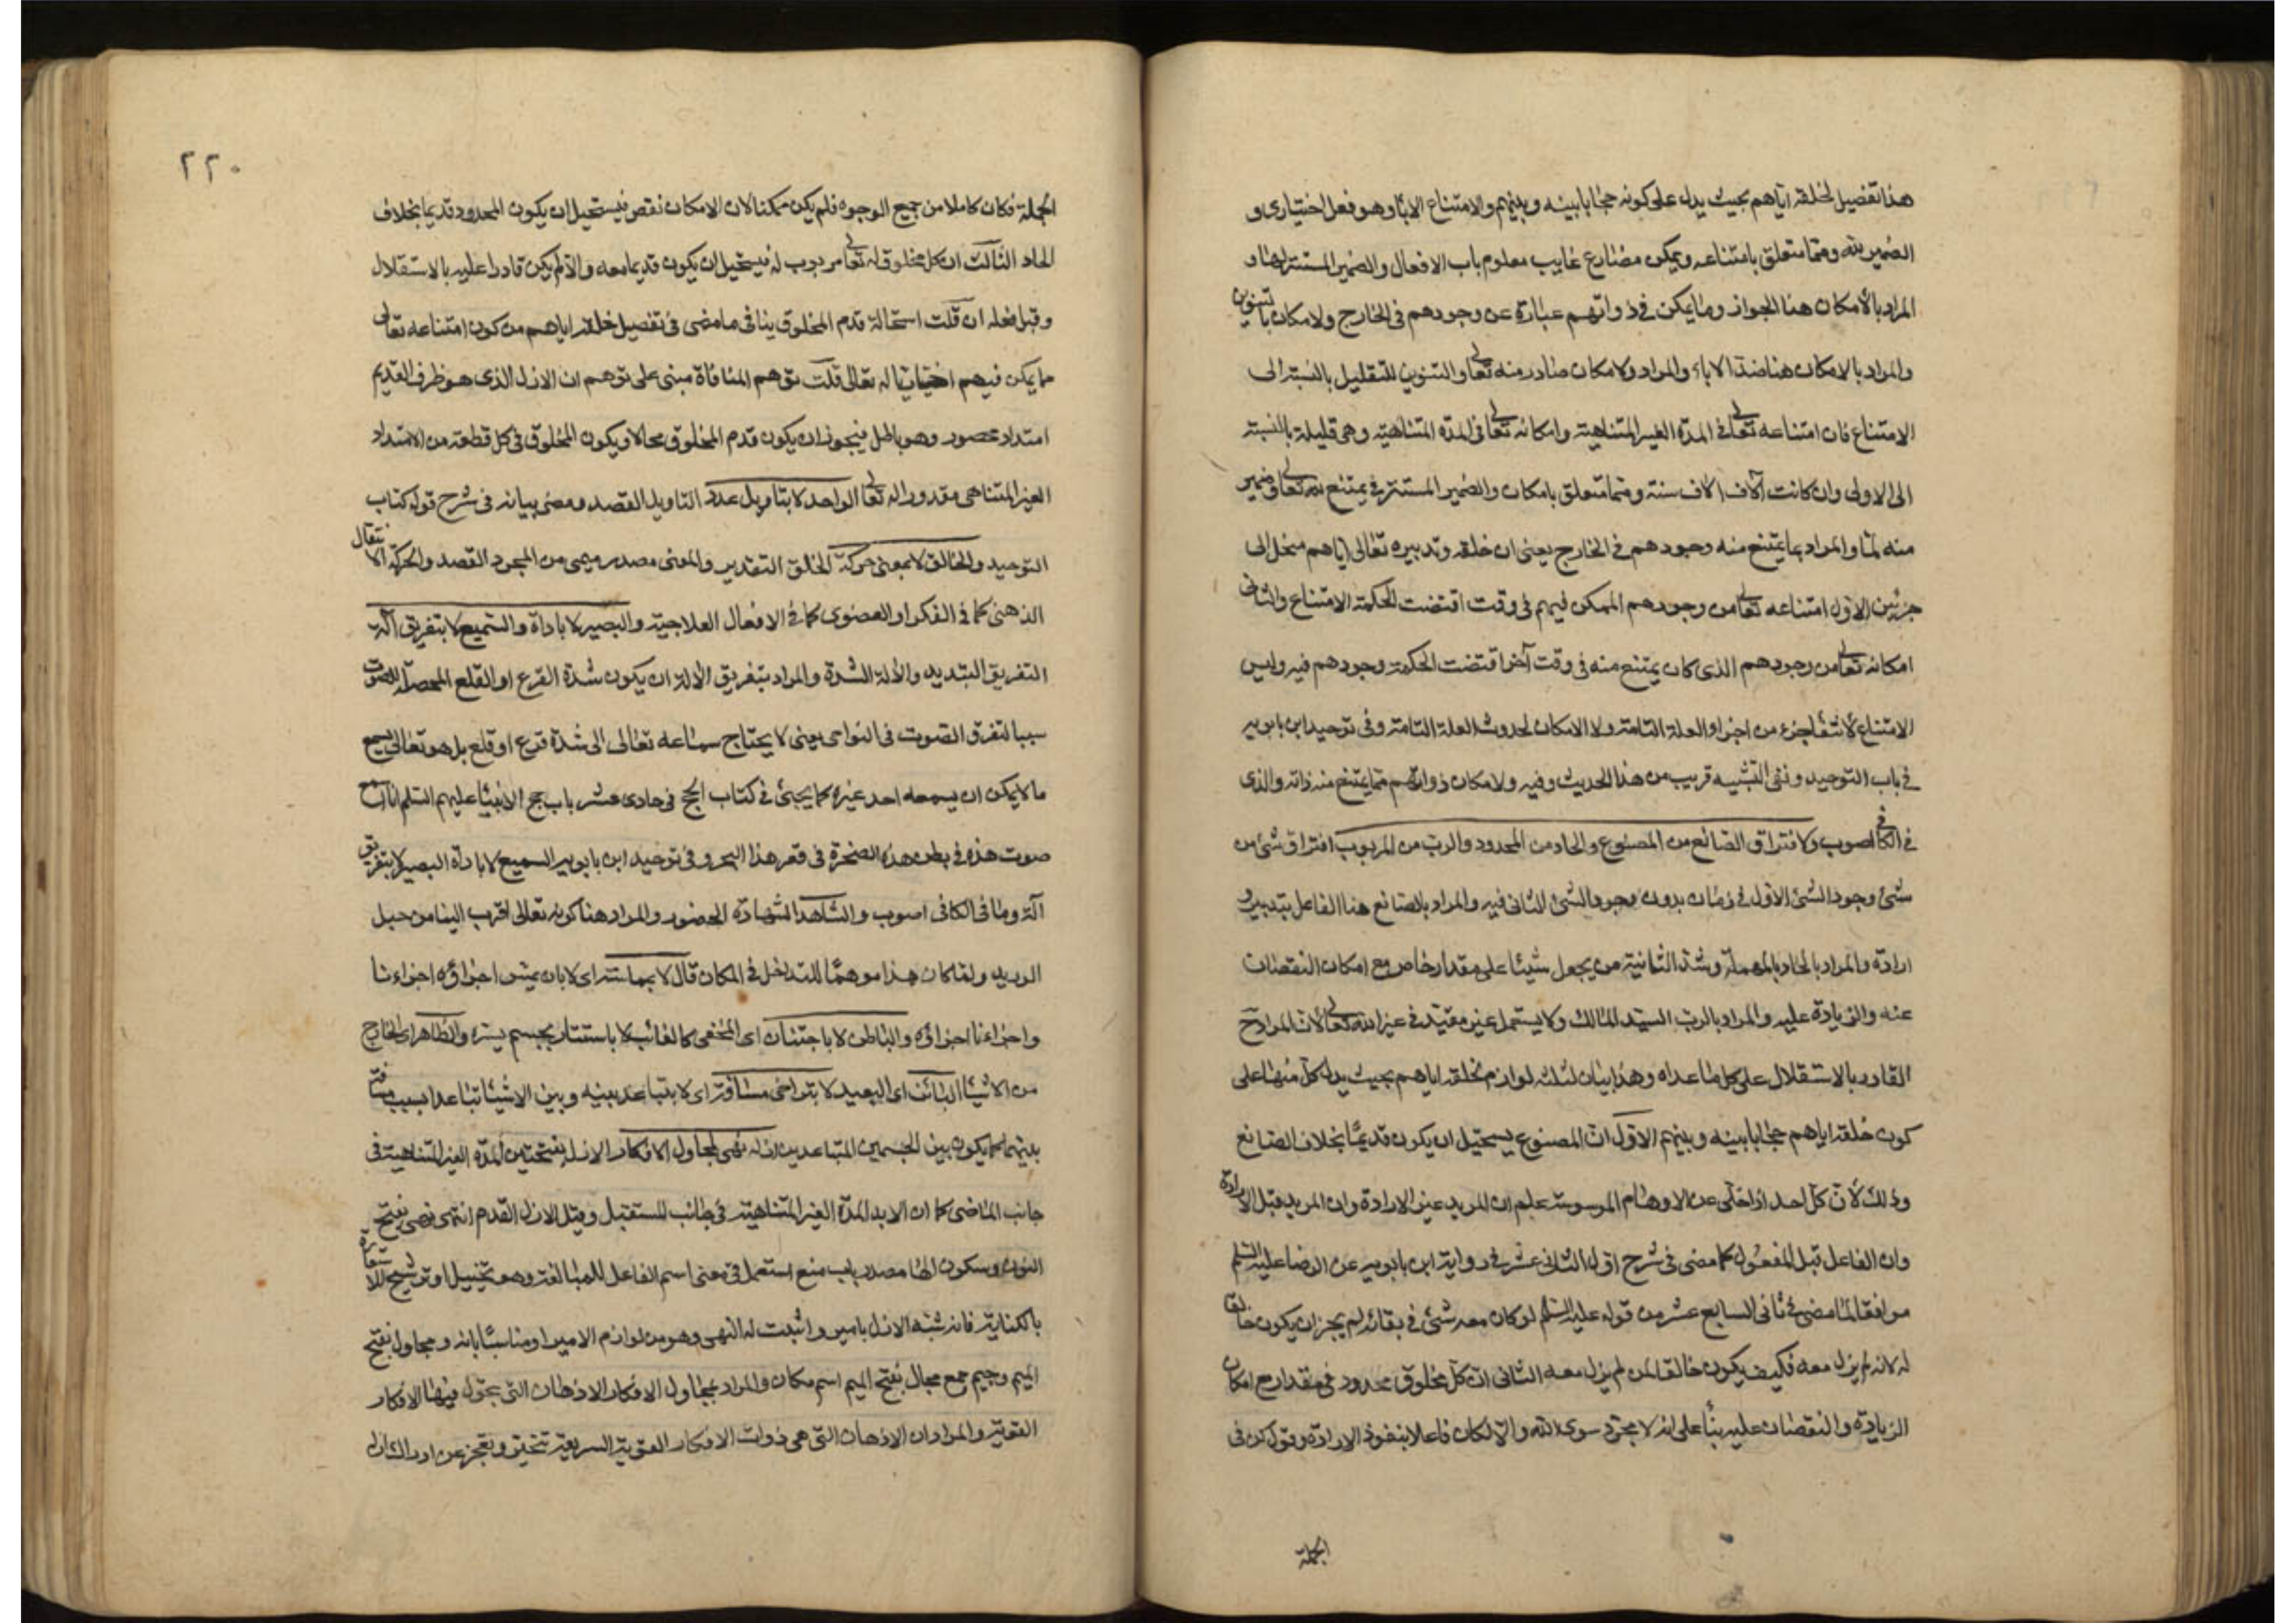 هذا تفصيل لخلقه اياهم بحيث يدل على كونه حجابا بينه وبينهم والامتناع الاباء وهو فعل اختياري و
الضمير لله ومما متعلق بامتناعه ويمكن مضارع غايب معلوم باب الافعال والضمير المستتر لها و
المراد بالامكان هنا الجواز وما يمكن في ذواتهم عبارة عن وجودهم في الخارج ولامكان بالتنوين
والمراد بالامكان هنا ضد الاباء والمراد ولامكان صادر منه تعالى والتنوين للتقليل بالنسبة الى
الامتناع فان امتناعه تعالى في المدة الغير المتناهية وامكانه تعالى في المدة المتناهية وهي قليلة بالنسبة
الى الاولى وان كانت آلاف آلاف سنة ومما متعلق بامكان والضمير المستتر في يمتنع لله تعالى وضمير
منه لما والمراد بما يمتنع منه وجودهم في الخارج يعني ان خلقه وتدبيره تعالى اياهم منحل الى
جزئين الاول امتناعه تعالى من وجودهم الممكن فيهم في وقت اقتضت الحكمة الامتناع والثاني
امكانه تعالى من وجودهم الذي كان يمتنع منه في وقت آخر اقتضت الحكمة وجودهم فيه وليس
الامتناع لانتفاء جزء من اجزاء العلة التامة ولا الامكان لحدوث العلة التامة وفي توحيد ابن بابويه
في باب التوحيد ونفي التشبيه قريب من هذا الحديث وفيه ولامكان ذواتهم مما يمتنع منه ذاته والذي
في الكافي اصوب ولافتراق الصانع من المصنوع والحاد من المحدود والرب من المربوب افتراق شئ من
شئ وجود الشئ الاول في زمان بدون وجود الشئ الثاني فيه والمراد بالصانع هنا الفاعل بتدبير و
ارادة والمراد بالحاد بالمهملة وشد الثانية من يجعل شيئا على مقدار خاص مع امكان النقصان
عنه والزيادة عليه والمراد بالرب السيد المالك ولا يستعمل غير مقيد في غير الله تعالى لان المراد ح
القادر بالاستقلال على كل ما عداه وهذا بيان لثلثة لوازم لخلقه اياهم بحيث يدل كل منها على
كون خلقه اياهم حجابا بينه وبينهم الاول ان المصنوع يستحيل ان يكون قديما بخلاف الصانع
وذلك لان كل احد اذا خلى عن الاوهام الموسوسة علم ان المريد غير الارادة وان المريد قبل الارادة
وان الفاعل قبل المفعول كما مضى في شرح اول الثاني عشر في رواية ابن بابويه عن الرضا عليه السلم
موافقا لما مضى في ثاني السابع عشر من قوله عليه السلم لو كان معه شئ في بقائه لم يجز ان يكون خالقا
له لانه لم يزل معه فكيف يكون خالقا لمن لم يزل معه الثاني ان كل مخلوق محدود في مقدار مع امكان
الزيادة والنقصان عليه بناء على انه لا مجرد سوى الله والا لكان فاعلا بنفوذ الارادة وقول كن في
الجملة
٢٢٠
الجملة فكان كاملا من جميع الوجوه فلم يكن ممكنا لان الامكان نقص فيستحيل ان يكون المحدود قديما بخلاف
الحاد الثالث ان كل مخلوق له تعالى مربوب له فيستحيل ان يكون قديما معه والا لم يكن قادرا عليه بالاستقلال
وقبل فعله ان قلت استحالة قدم المخلوق ينافي ما مضى في تفصيل خلقه اياهم من كون امتناعه تعالى
مما يمكن فيهم اختياريا له تعالى قلت توهم المنافاة مبني على توهم ان الازل الذي هو ظرف القديم
امتداد محصور وهو باطل فيجوز ان يكون قدم المخلوق محالا ويكون المخلوق في كل قطعة من الامتداد
الغير المتناهي مقدورا له تعالى الواحد لا بتأويل عدد التاويل القصد ومضى بيانه في شرح قوله كتاب
التوحيد والخالق لا بمعنى حركة الخلق التقدير والمعنى مصدر ميمي من المجرد القصد والحركة الانتقال
الذهني كما في الفكر او العضوي كما في الافعال العلاجية والبصير لا باداة والسميع لا بتفريق آلة
التفريق التبديد والآلة الشدة والمراد بتفريق الآلة ان يكون شدة القرع او القلع المحصلة للصوت
سببا لتفرق الصوت في النواحي يعني لا يحتاج سماعه تعالى الى شدة قرع او قلع بل هو تعالى يسمع
ما لا يمكن ان يسمعه احد غيره كما يجئ في كتاب الحج في حادي عشر باب حج الانبياء عليهم السلم انا اسمع
صوت هذه في بطن هذه الصخرة في قعر هذا البحر وفي توحيد ابن بابويه السميع لا باداة البصير لا بتفريق
آلة وما في الكافي اصوب والشاهد الشهادة الحضور والمراد هنا كونه تعالى اقرب الينا من حبل
الوريد ولما كان هذا موهما للتداخل في المكان قال لا بمماسة اي لا بان يمس اجزاؤه اجزاءنا
واجزاءنا اجزاؤه والباطن لا باجتنان اي المخفي كالغائب لا باستتار بجسم يستره والظاهر اي الخارج
من الاشياء البائن اي البعيد لا بتراخي مسافة اي لا بتباعد بينه وبين الاشياء تباعدا بسبب مسافة
بينهما كما يكون بين الجسمين المتباعدين ازله نهى لمجاول الافكار الازل بفتحتين المدة الغير المتناهية في
جانب الماضي كما ان الابد المدة الغير المتناهية في جانب المستقبل وقيل الازل القدم انتهى ونهى بفتح
النون وسكون الها مصدر باب منع استعمل في معنى اسم الفاعل للمبالغة وهو تخييل او ترشيح للاستعارة
بالكناية فانه شبه الازل بامير واثبت له النهي وهو من لوازم الامير او مناسباته ومجاول بفتح
الميم وجيم جمع مجال بفتح الميم اسم مكان والمراد بمجاول الافكار الاذهان التي يجول فيها الافكار
القوية والمراد ان الاذهان التي هي ذوات الافكار القوية السريعة تتحير وتعجز عن ادراك ازله